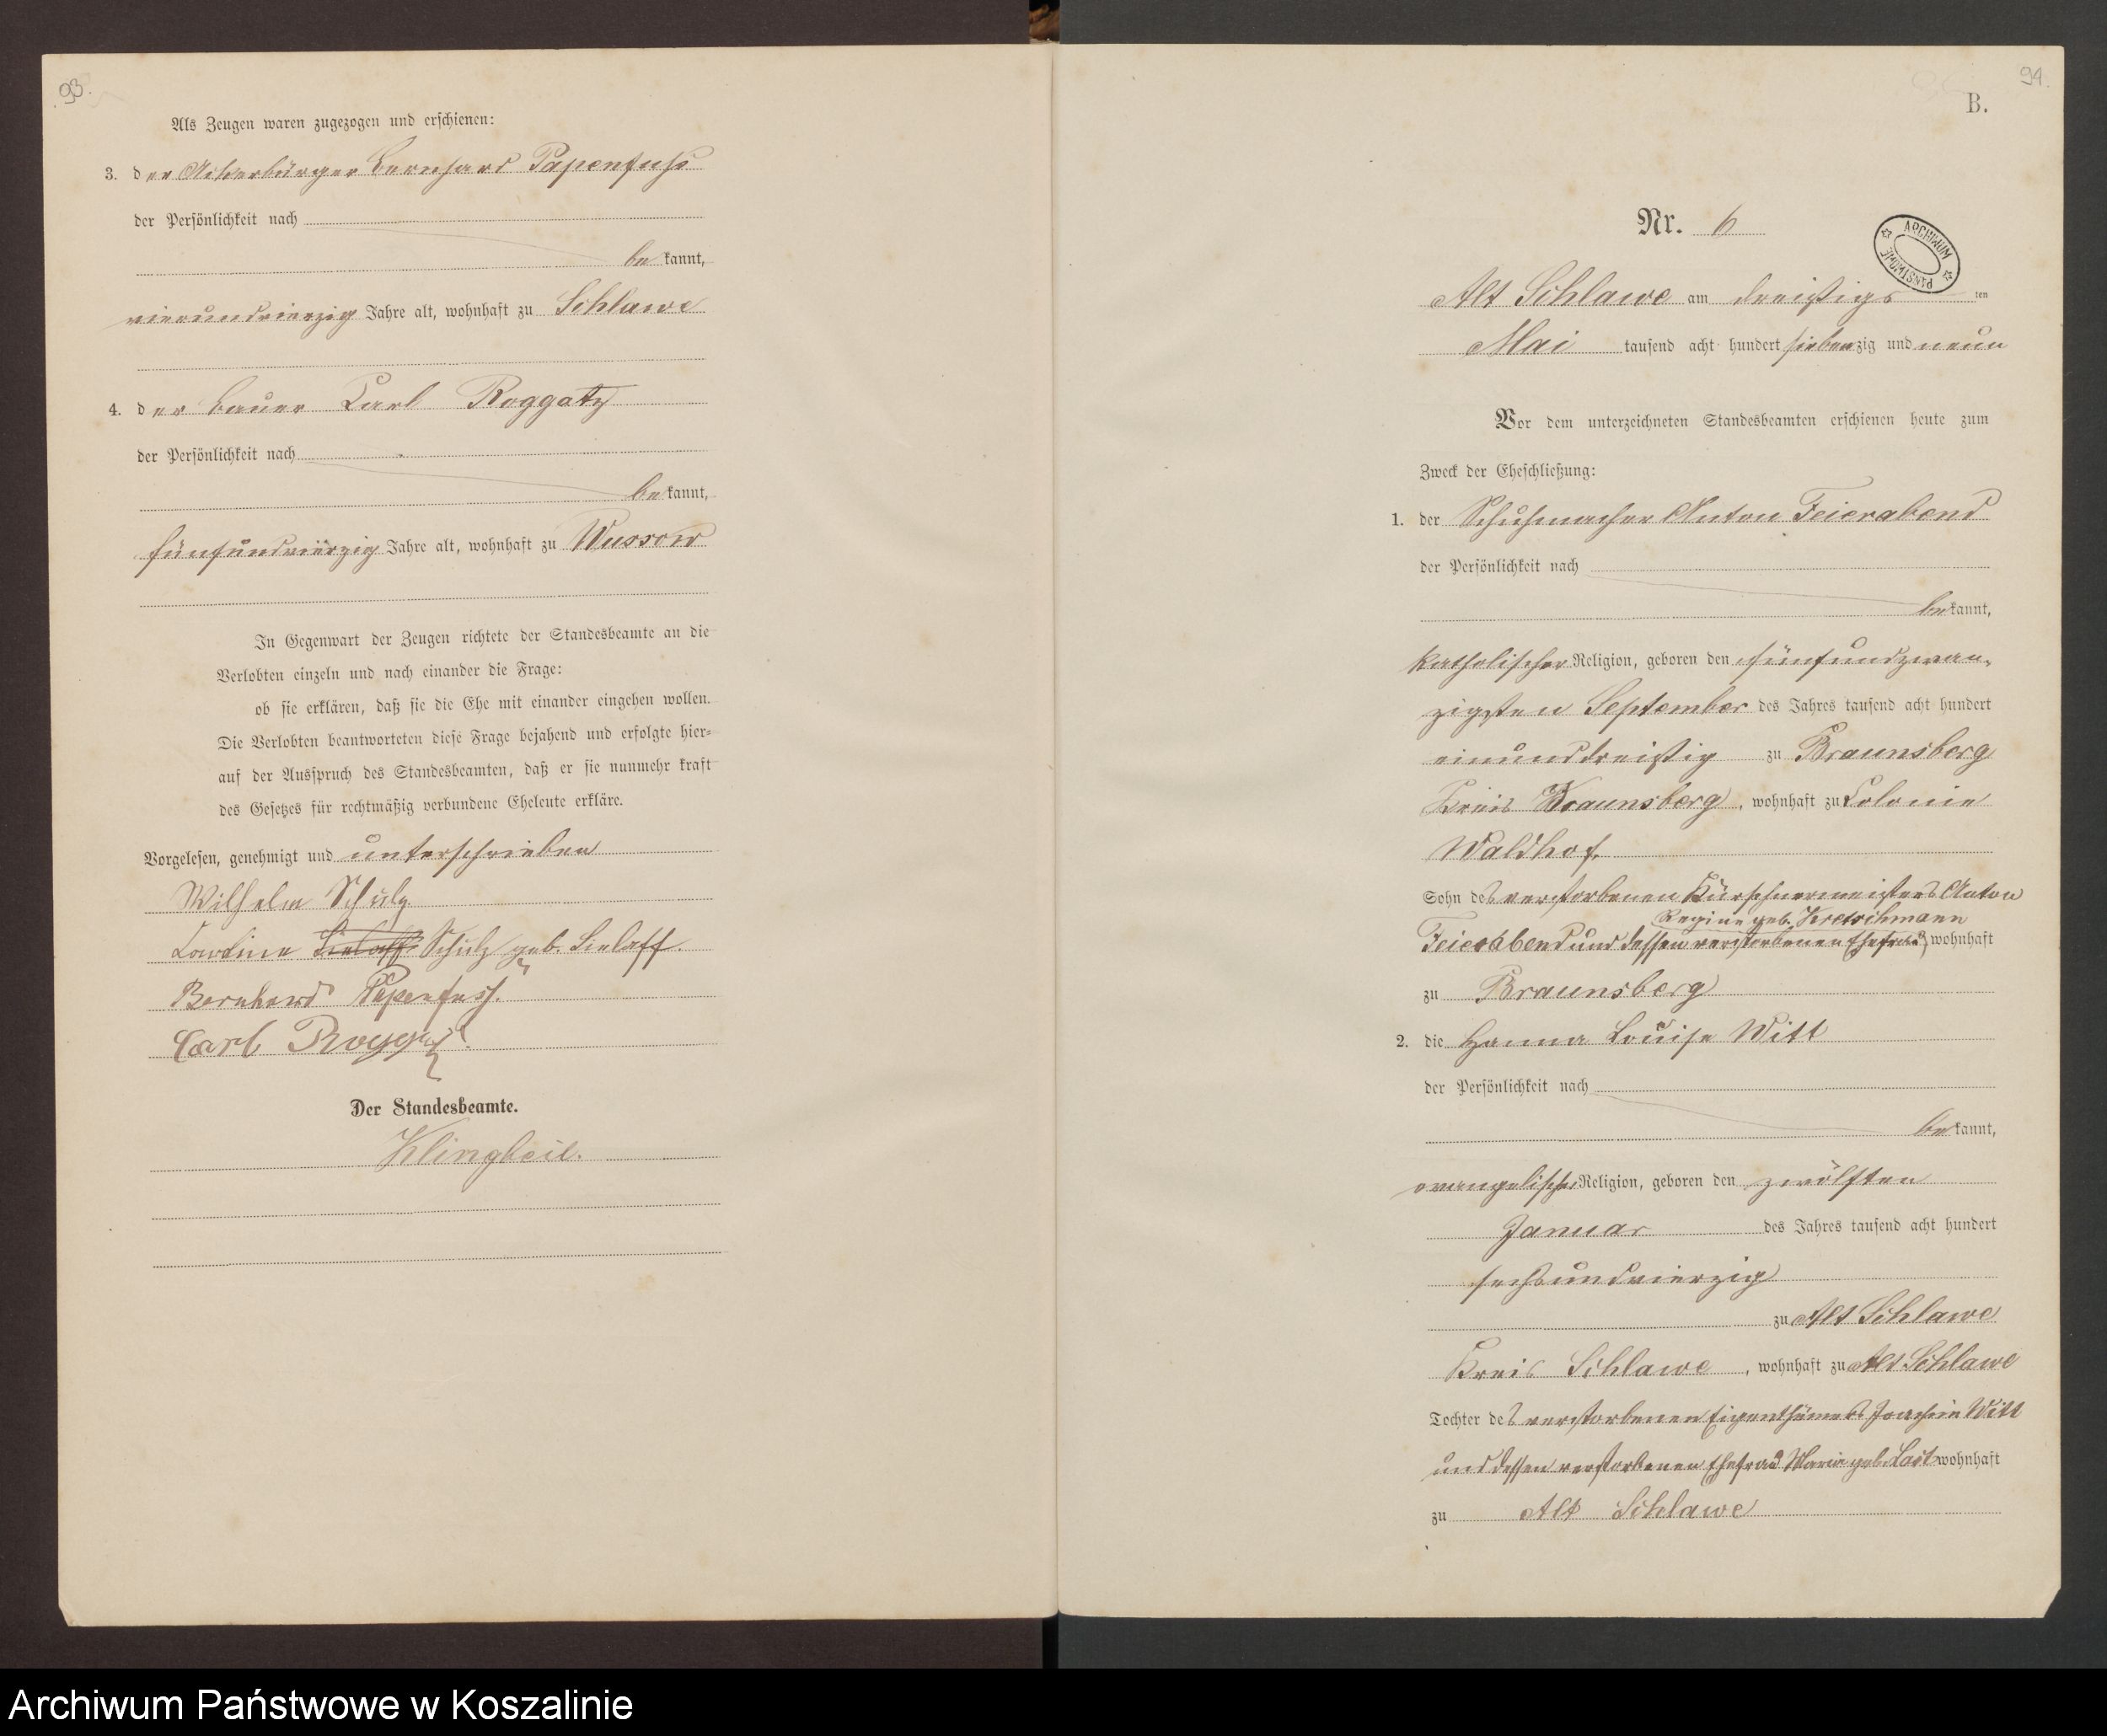 93.
Als Zeugen waren zugezogen und erschienen:
3. der Ackerbürger Bernhard Papenfuß
der Persönlichkeit nach
bekannt,
vierundvierzig Jahre alt, wohnhaft zu Schlawe
4. der Bauer Carl Roggatz
der Persönlichkeit nach
bekannt,
fünfundvierzig Jahre alt, wohnhaft zu Wussow
In Gegenwart der Zeugen richtete der Standesbeamte an die
Verlobten einzeln und nach einander die Frage:
ob sie erklären, daß sie die Ehe mit einander eingehen wollen.
Die Verlobten beantworteten diese Frage bejahend und erfolgte hier-
auf der Ausspruch des Standesbeamten, daß er sie nunmehr kraft
des Gesetzes für rechtmäßig verbundene Eheleute erkläre.
Vorgelesen, genehmigt und unterschrieben
Wilhelm Schulz
Caroline Lielaff Schulz geb. Lielaff.
Bernhard Papenfuss.
Carl Roggatz.
Der Standesbeamte.
Klingbeil.
94.
B.
Nr. 6
ARCHIWUM PAŃSTWOWE
Alt Schlawe am dreißigsten
Mai tausend acht hundert siebenzig und neun
Vor dem unterzeichneten Standesbeamten erschienen heute zum
Zweck der Eheschließung:
1. der Schuhmacher Anton Feierabend
der Persönlichkeit nach
bekannt,
katholischer Religion, geboren den fünfundzwan-
zigsten September des Jahres tausend acht hundert
einunddreißig zu Braunsberg
Kreis Braunsberg, wohnhaft zu Colonie
Waldhof.
Sohn des verstorbenen Kürschnermeisters Anton
Regine geb. Kretschmann
Feierabend und dessen verstorbenen Ehefrau wohnhaft
zu Braunsberg
2. die Hanna Louise Witt
der Persönlichkeit nach
bekannt,
evangelischer Religion, geboren den zwölften
Januar des Jahres tausend acht hundert
sechsundvierzig
zu Alt Schlawe
Kreis Schlawe, wohnhaft zu Alt Schlawe
Tochter des verstorbenen Eigenthümers Joachim Witt
und dessen verstorbenen Ehefrau Marie geb. Last wohnhaft
zu Alt Schlawe
Archiwum Państwowe w Koszalinie